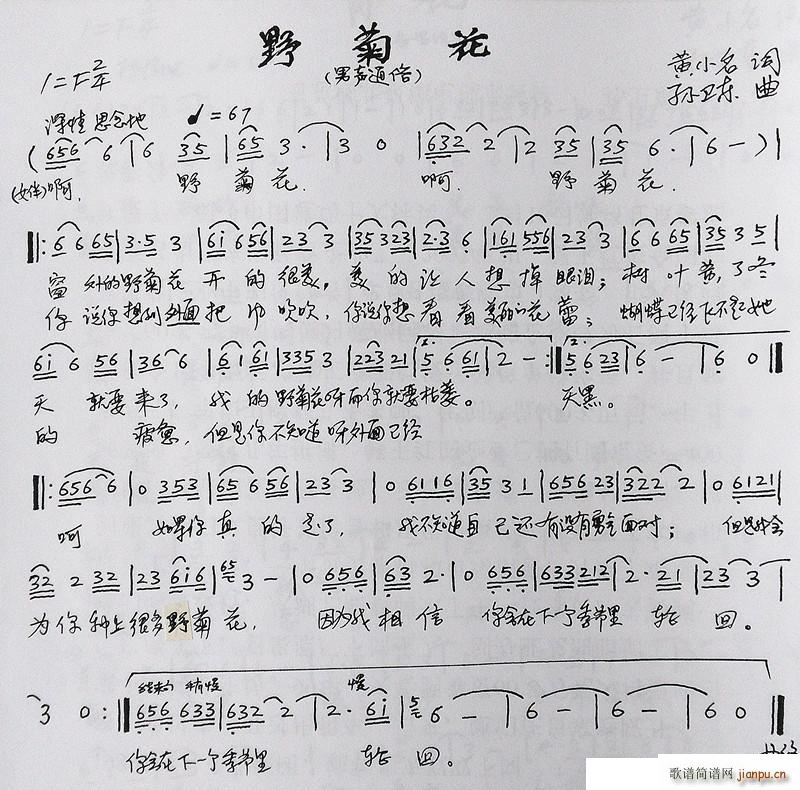 野菊花
(男声通俗)
1=F 2/4
黄小名 词
孙卫东 曲
深情 思念地 ♩=67
(656 6 | 6 35 | 65 3· | 3 0 | 632 2 | 2 35 | 35 6· | 6 - ) |
(女伴)啊. 野菊花. 啊. 野菊花.
‖: 6 6 65 | 3·5 3 | 6i 656 | 23 3 | 35 323 | 2·3 6 | 161 556 | 23 3 | 6 6 65 | 35 3 5 |
窗外的野菊花开的很美,美的让人想掉眼泪;树叶黄了冬
你说你想到外面把风吹吹,你说你想看看美丽的花蕾;蝴蝶已经飞不起她
6i 6 56 | 36 6 | 61 61 | 335 3 | 2232 21 | 1. 5 6 61 | 2 - :‖ 2. 5 6 23 | 6 - | 6 0 ‖
天就要来了,我的野菊花呀而你就要枯萎。天黑。
的疲惫,但是你不知道呀外面已经
‖: 656 6 | 0 353 | 65 656 | 23 3 | 0 6116 | 35 3 1 | 656 23 | 322 2 | 0 6121 |
呵 如果你真的走了,我不知道自己还有没有勇气面对;但是我会
32 2 32 | 23 6i6 | 65 3 - | 0 656 | 63 2· | 0 656 | 633 212 | 2· 21 | 23 3 |
为你种上很多野菊花,因为我相信你会在下一个季节里轮回。
3 0 :‖ 结束句 稍慢 656 633 | 632 2 | 2· 慢 6i | 5 6 - | 6 - | 6 - | 6 0 ‖
你会在下一个季节里轮回。
歌谱简谱网 jianpu.cn